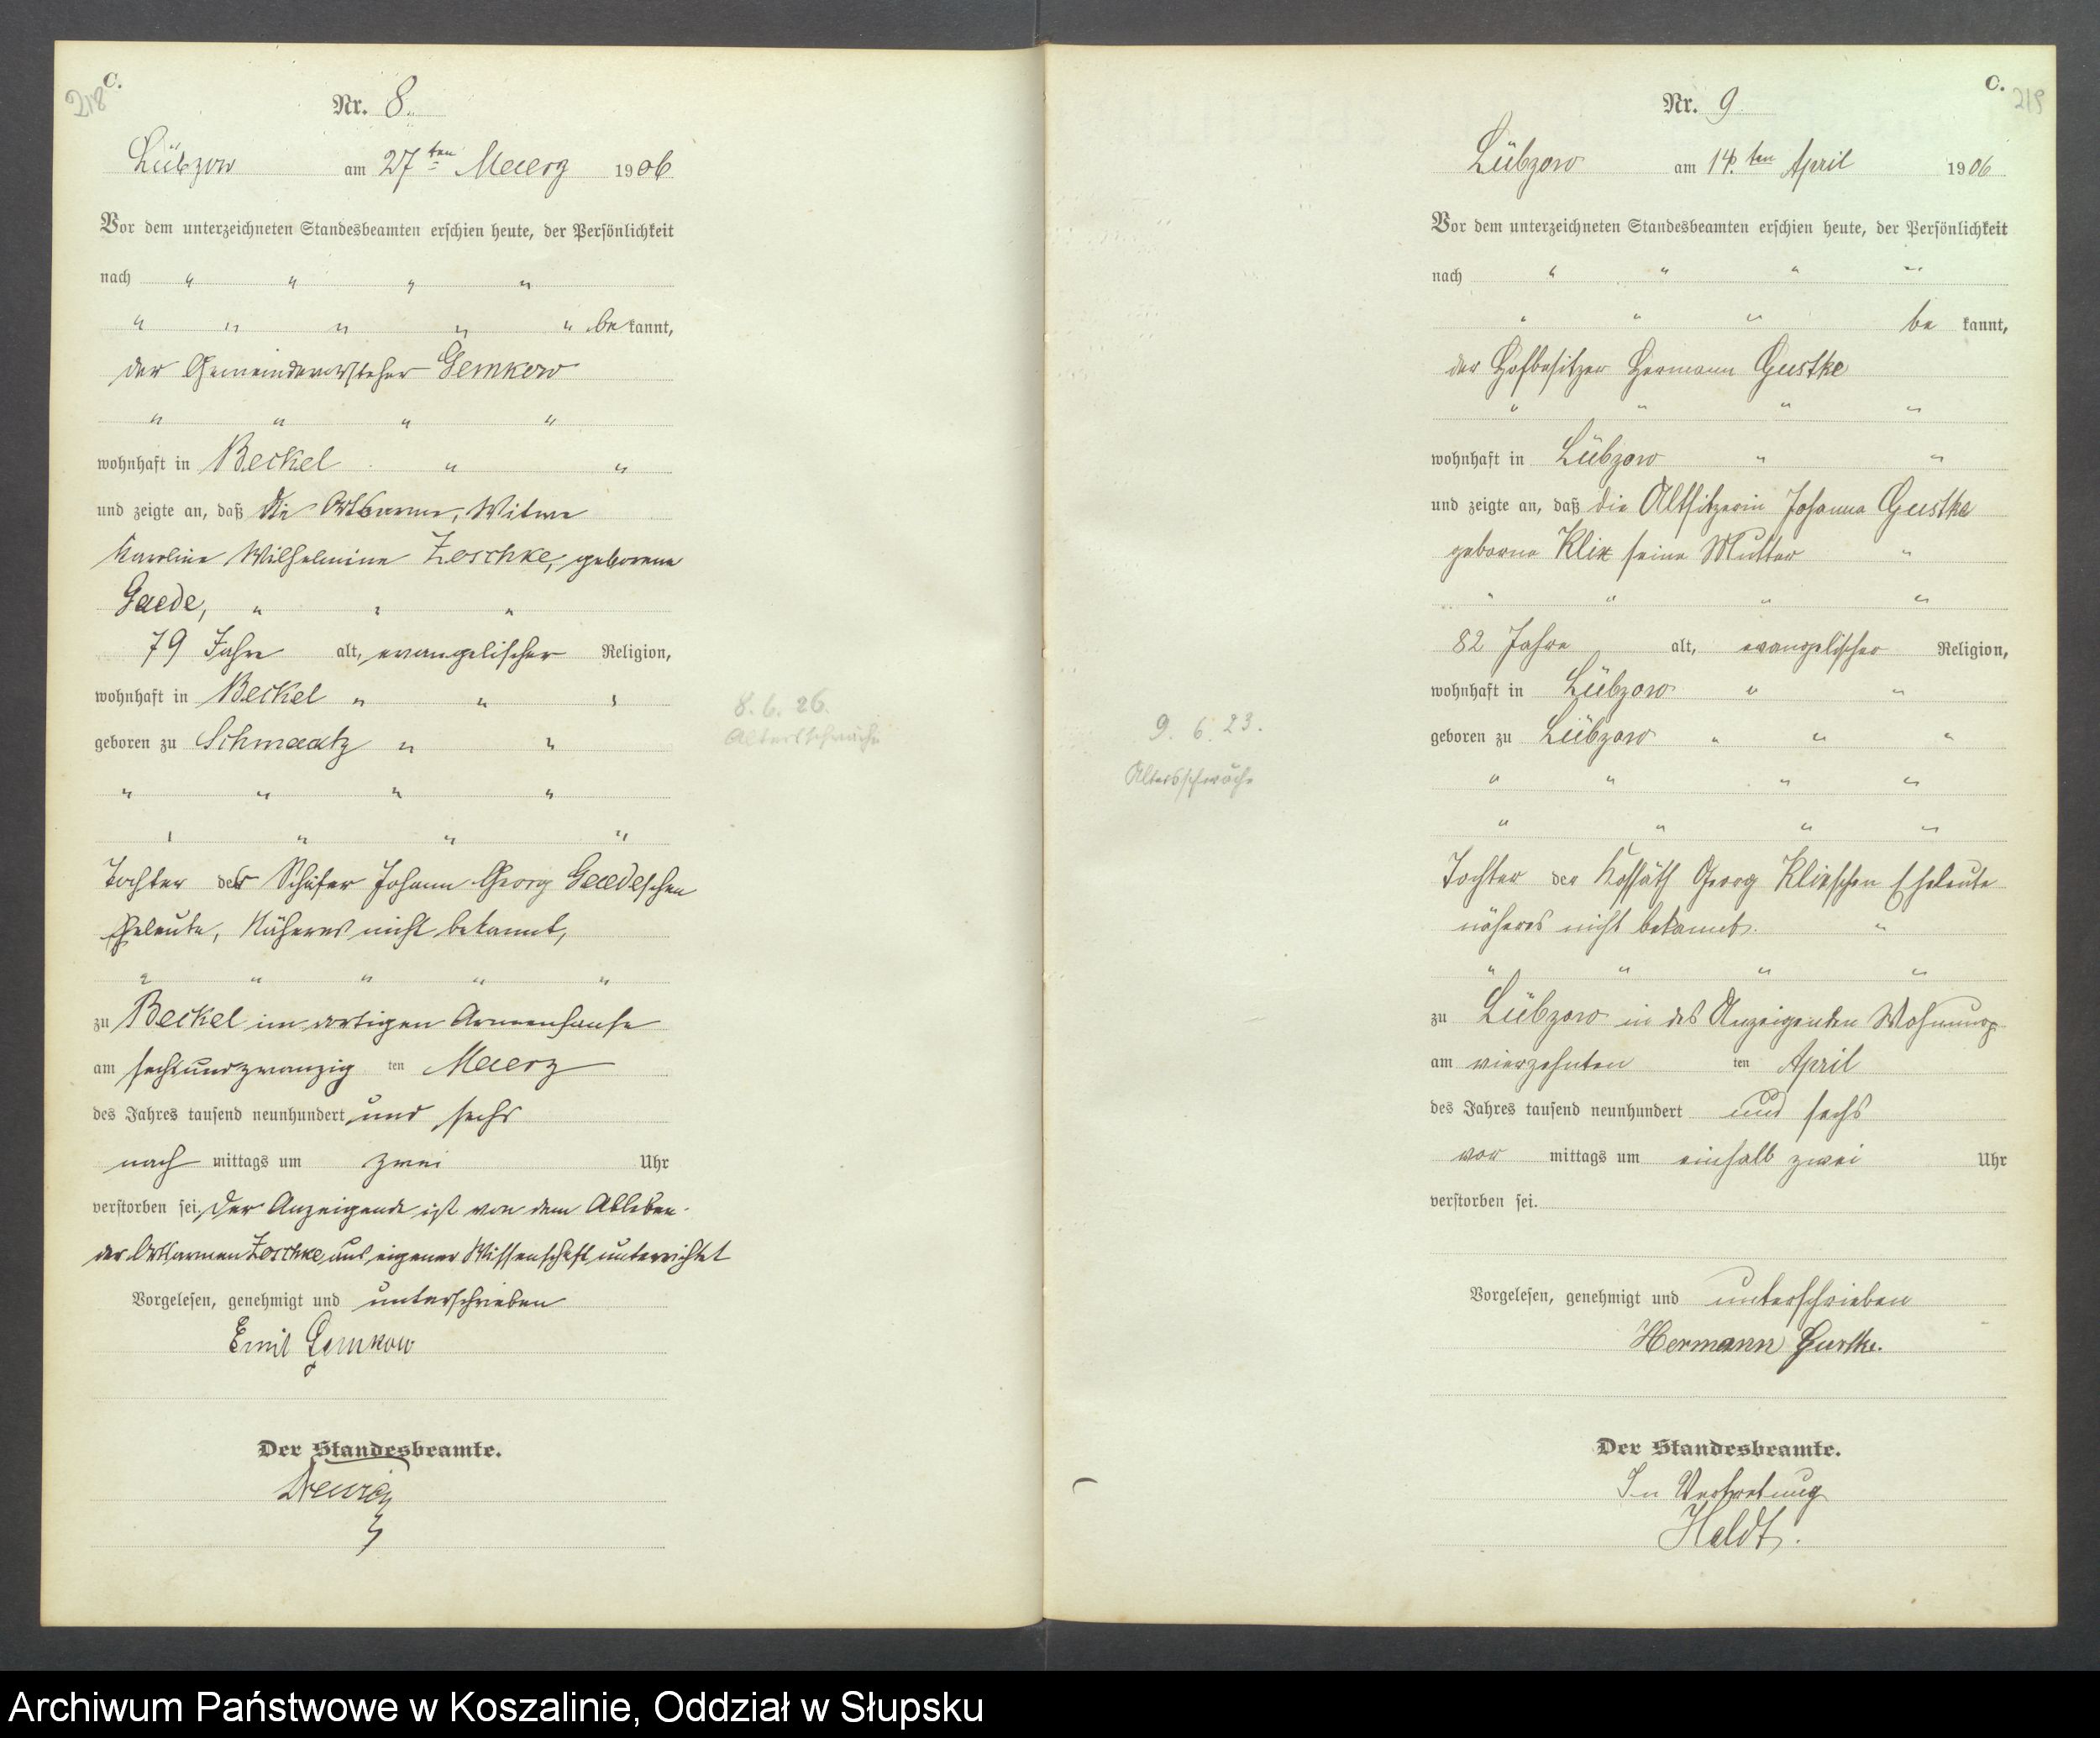 218
C.
Nr. 8.
Lübzow am 27ten Maerz 1906
Vor dem unterzeichneten Standesbeamten erschien heute, der Persönlichkeit
nach " " " "
" " " " " bekannt,
der Gemeindevorsteher Gemkow
" " " "
wohnhaft in Beckel " "
und zeigte an, daß die Ortsarme, Witwe
Karoline Wilhelmine Zoschke, geborene
Gaede, " " "
79 Jahre alt, evangelischer Religion,
wohnhaft in Beckel " " "
geboren zu Schmaatz " "
" " " "
" " " "
Tochter der Schäfer Johann Georg Gaedeschen
Eheleute, Näheres nicht bekannt,
" " " " "
zu Beckel im ortigen Armenhause
am sechsundzwanzig ten Maerz
des Jahres tausend neunhundert und sechs
nach mittags um zwei Uhr
verstorben sei. Der Anzeigende ist von dem Ableben
der Ortsarmen Zoschke aus eigener Wissenschaft unterrichtet
Vorgelesen, genehmigt und unterschrieben
Emil Gemkow
Der Standesbeamte.
8. 6. 26.
Altersschwäche
C.
219
Nr. 9
Lübzow am 14.ten April 1906
Vor dem unterzeichneten Standesbeamten erschien heute, der Persönlichkeit
nach " " " "
" " " be kannt,
der Hofbesitzer Hermann Gustke
" " " "
wohnhaft in Lübzow " "
und zeigte an, daß die Altsitzerin Johanna Gustke
geborne Klix seine Mutter "
" " " "
82 Jahre alt, evangelischer Religion,
wohnhaft in Lübzow " "
geboren zu Lübzow " " "
" " " "
" " " "
Tochter der Kossäth Georg Klixschen Eheleute
näheres nicht bekannt. "
" " " "
zu Lübzow in des Anzeigenden Wohnung
am vierzehnten ten April
des Jahres tausend neunhundert und sechs
vor mittags um einhalb zwei Uhr
verstorben sei.
Vorgelesen, genehmigt und unterschrieben
Hermann Gustke.
Der Standesbeamte.
In Vertretung
Haldt.
9. 6. 23.
Altersschwäche
Archiwum Państwowe w Koszalinie, Oddział w Słupsku